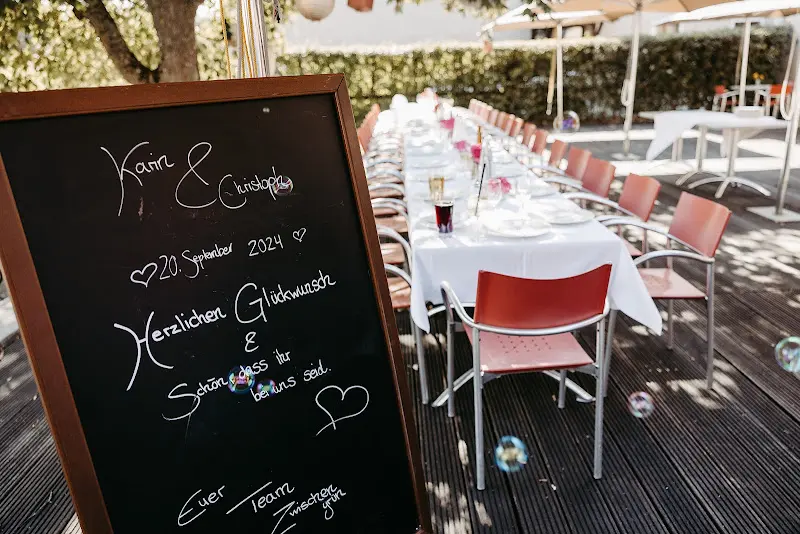 Karin & Christoph
20. September 2024
Herzlichen Glückwunsch
&
Schön, dass ihr
bei uns seid.
Euer Team Zwischen
grün